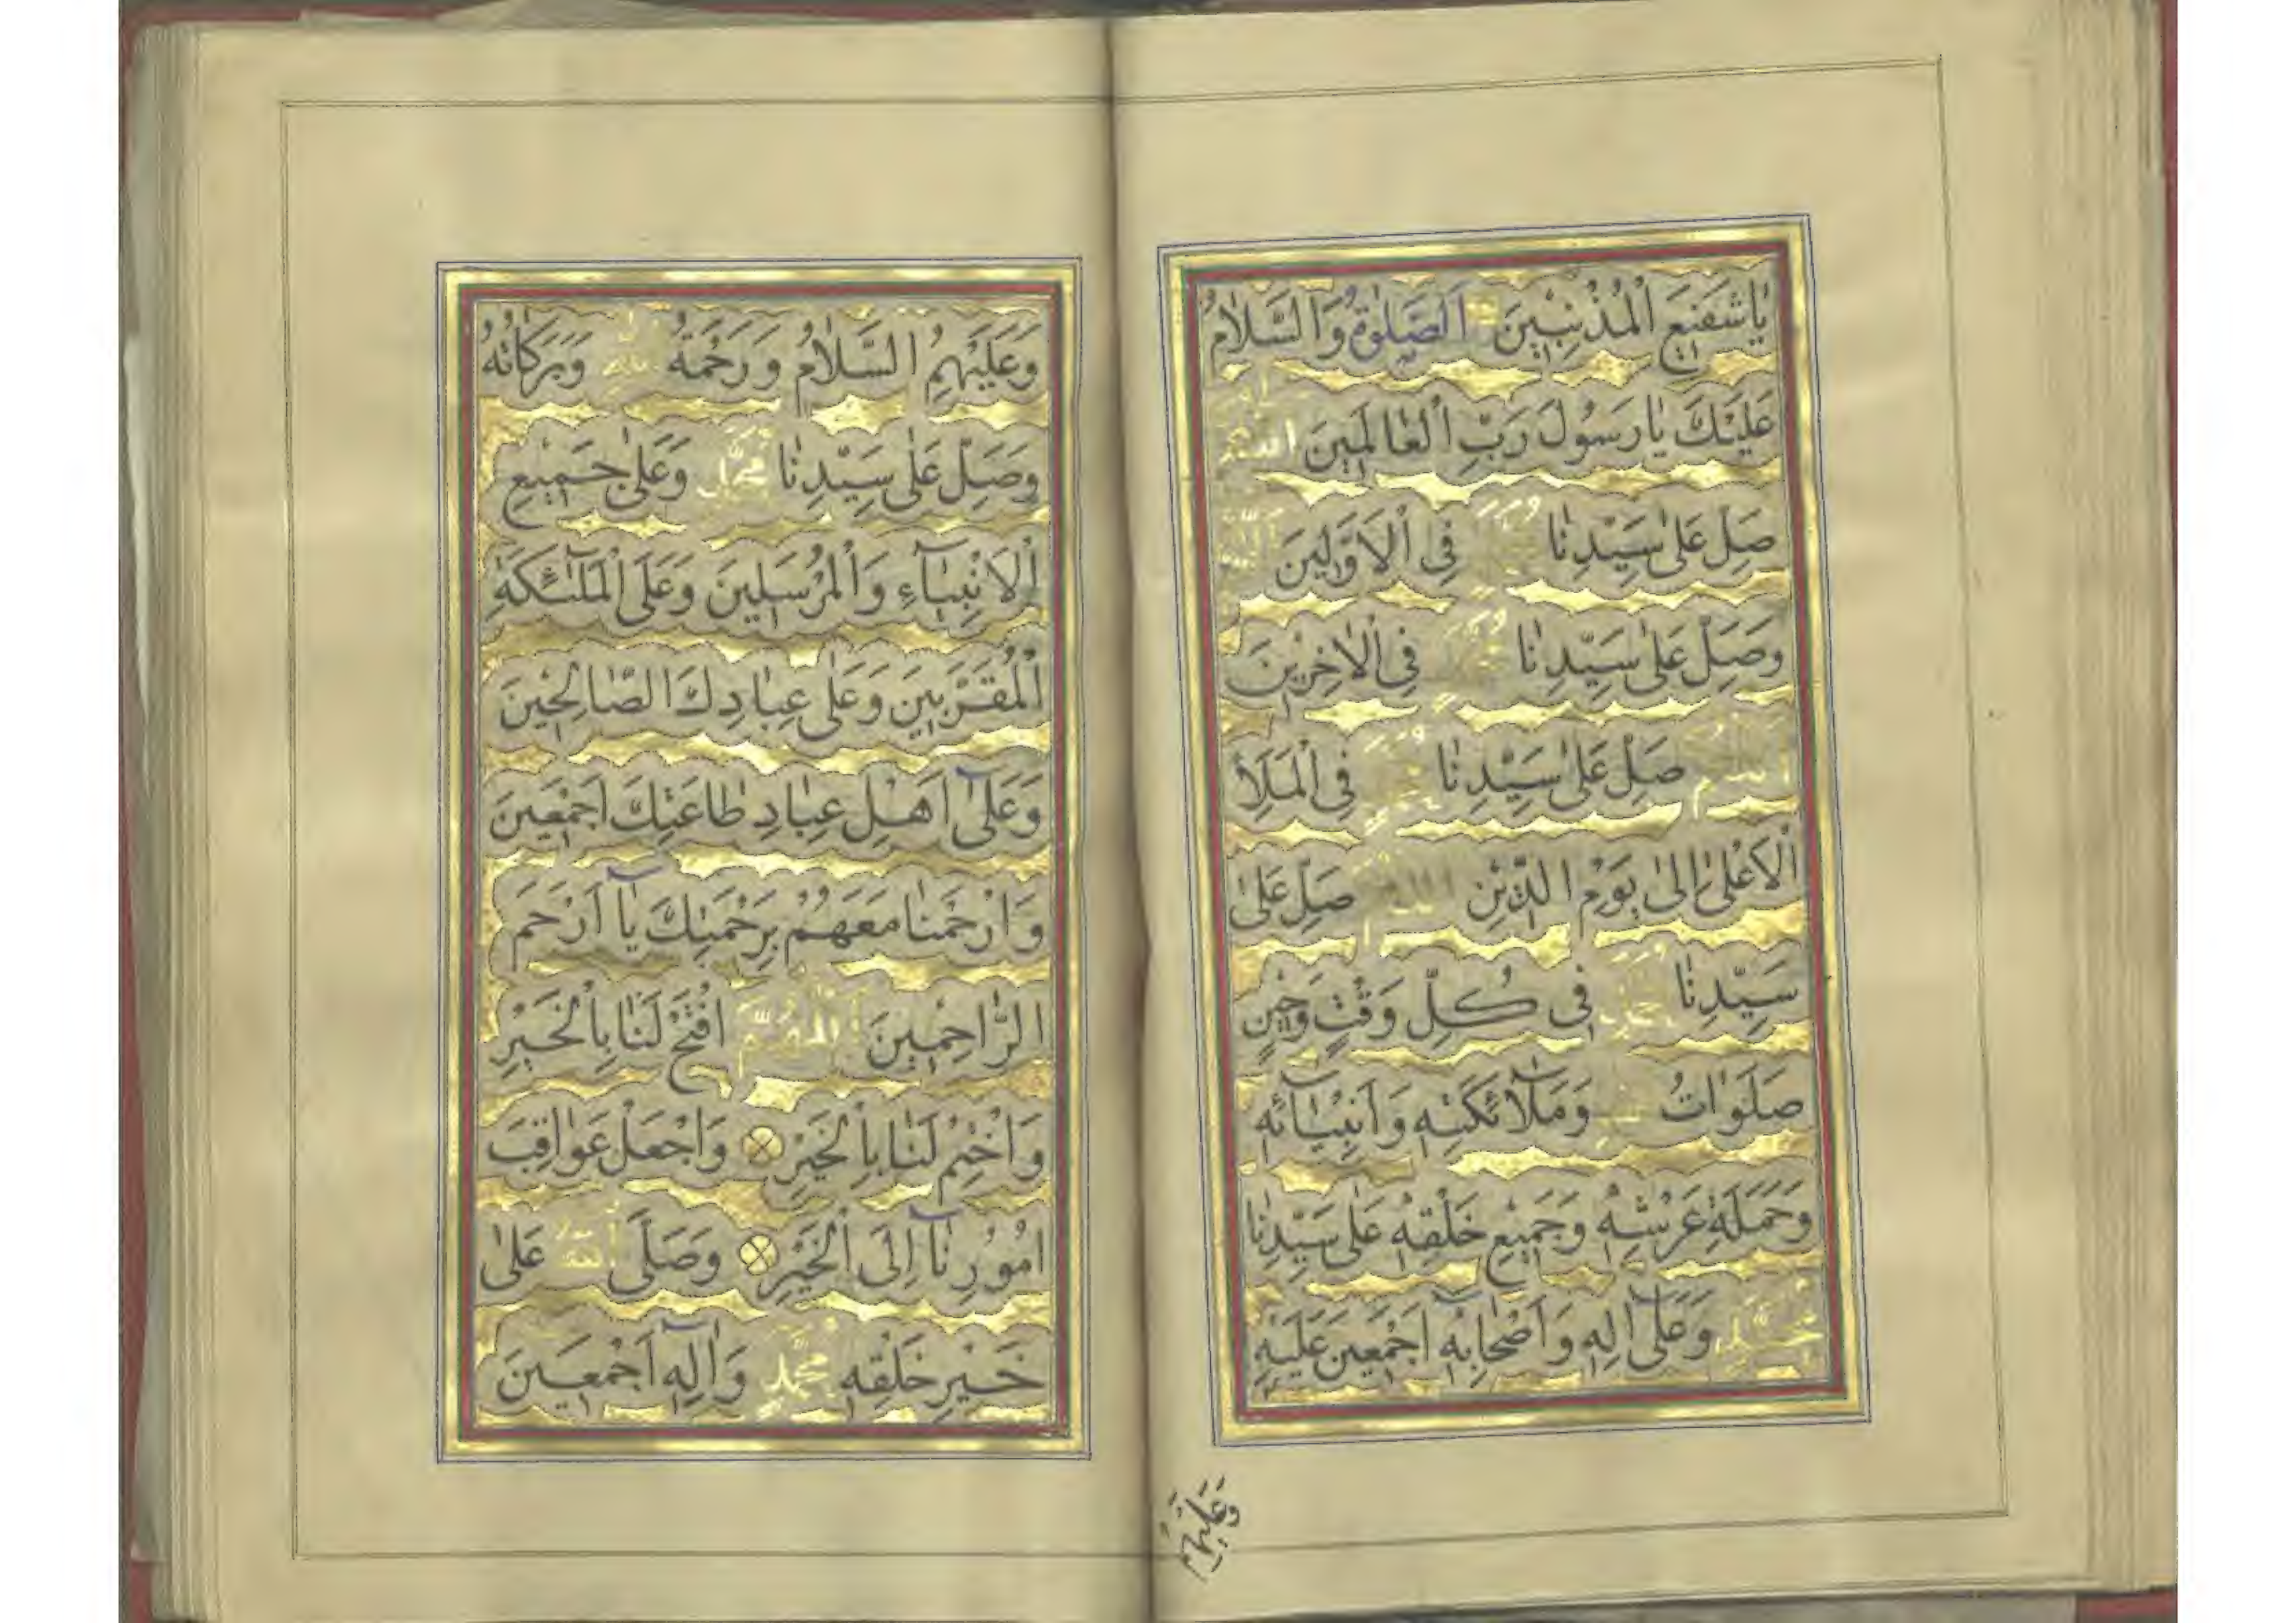 يَا شَفِيعَ الْمُذْنِبِينَ اَلصَّلٰوةُ وَالسَّلَامُ
عَلَيْكَ يَا رَسُولَ رَبِّ الْعَالَمِينَ اللهم
صَلِّ عَلٰى سَيِّدِنَا مُحَمَّدٍ فِى الْاَوَّلِينَ
وَصَلِّ عَلٰى سَيِّدِنَا مُحَمَّدٍ فِى الْاٰخِرِينَ
اللهم صَلِّ عَلٰى سَيِّدِنَا مُحَمَّدٍ فِى الْمَلَأِ
الْاَعْلٰى اِلٰى يَوْمِ الدِّينِ اللهم صَلِّ عَلٰى
سَيِّدِنَا مُحَمَّدٍ فِى كُلِّ وَقْتٍ وَحِينٍ
صَلَوَاتُ اللهِ وَمَلَآئِكَتِهِ وَاَنْبِيَآئِهِ
وَحَمَلَةِ عَرْشِهِ وَجَمِيعِ خَلْقِهِ عَلٰى سَيِّدِنَا
مُحَمَّدٍ وَعَلٰٓى اٰلِهِ وَاَصْحَابِهِ اَجْمَعِينَ عَلَيْهِ
وَعَلَيْهِمُ
وَعَلَيْهِمُ السَّلَامُ وَرَحْمَةُ اللهِ وَبَرَكَاتُهُ
وَصَلِّ عَلٰى سَيِّدِنَا مُحَمَّدٍ وَعَلٰى جَمِيعِ
الْاَنْبِيَآءِ وَالْمُرْسَلِينَ وَعَلَى الْمَلٰٓئِكَةِ
الْمُقَرَّبِينَ وَعَلٰى عِبَادِكَ الصَّالِحِينَ
وَعَلٰٓى اَهْلِ عِبَادِ طَاعَتِكَ اَجْمَعِينَ
وَارْحَمْنَا مَعَهُمْ بِرَحْمَتِكَ يَآ اَرْحَمَ
الرَّاحِمِينَ اَللّٰهُمَّ افْتَحْ لَنَا بِالْخَيْرِ
وَاخْتِمْ لَنَا بِالْخَيْرِ وَاجْعَلْ عَوَاقِبَ
اُمُورِنَآ اِلَى الْخَيْرِ وَصَلَّى اللهُ عَلٰى
خَيْرِ خَلْقِهِ مُحَمَّدٍ وَاٰلِهِ اَجْمَعِينَ